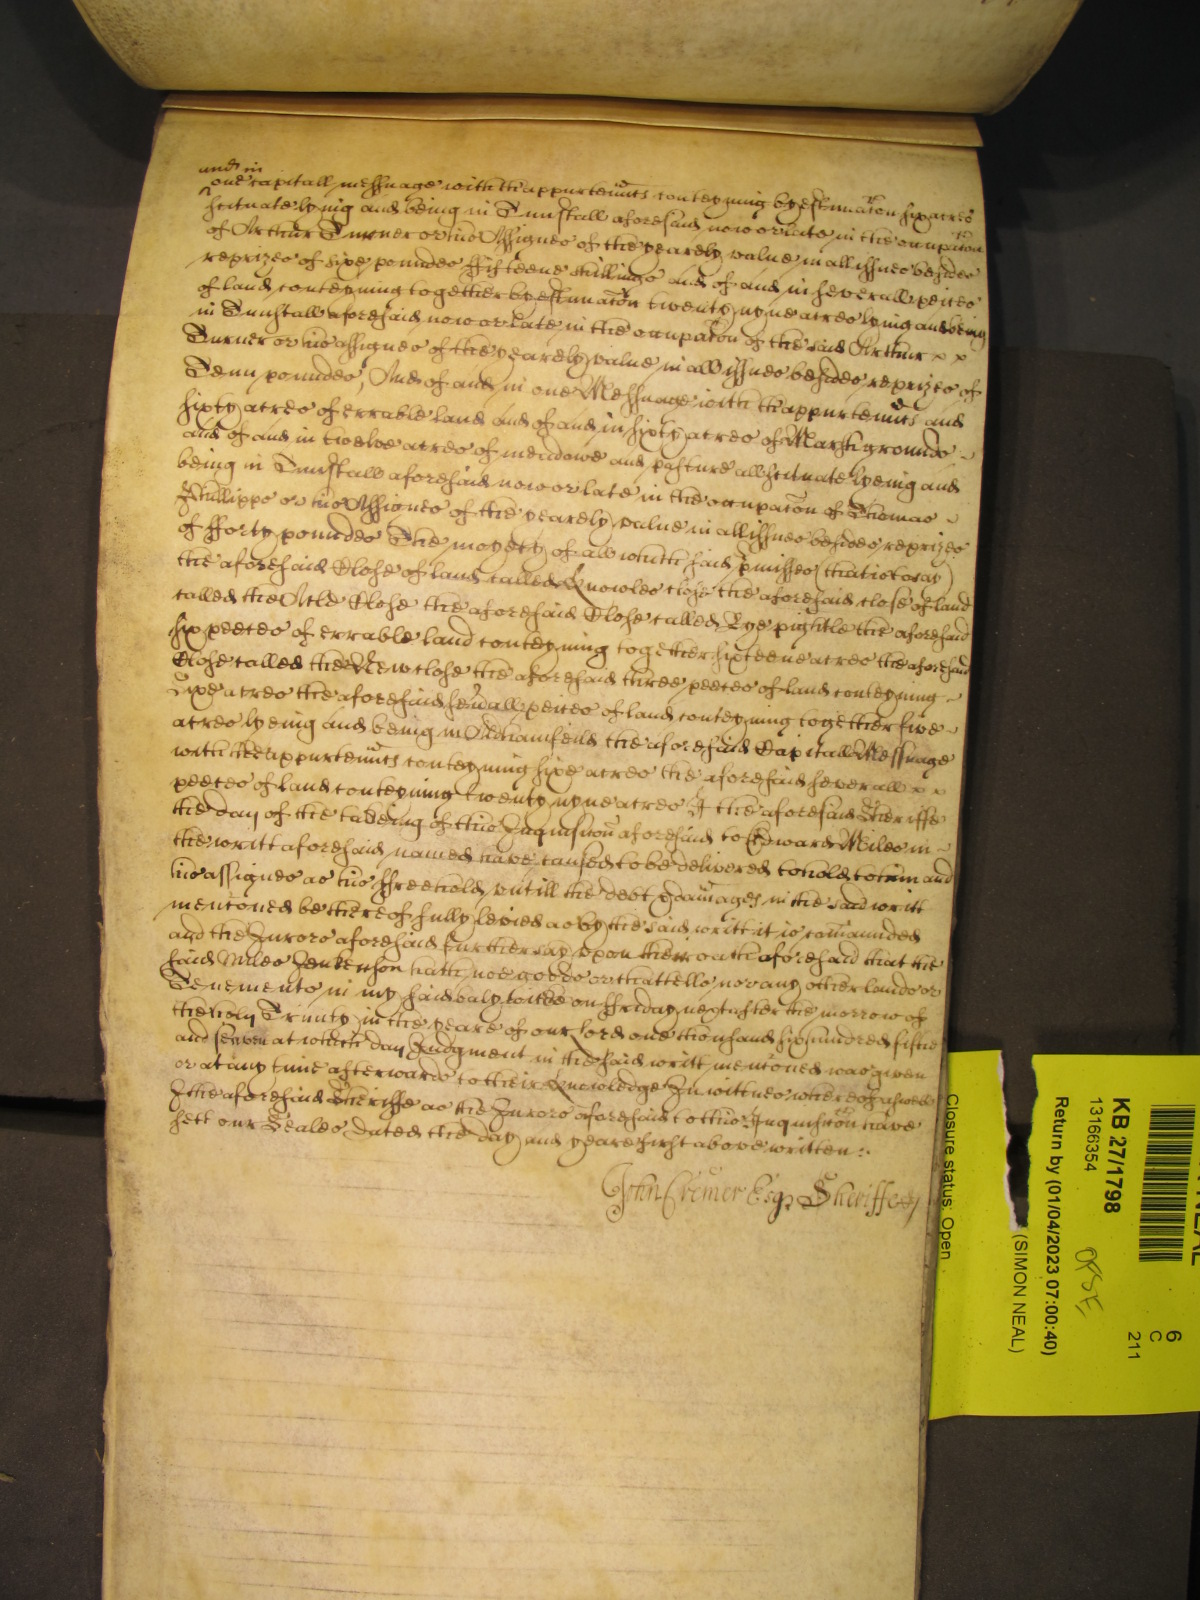 and in
one capitall messuage with th'appurten'nts conteyning by estimac'on six acres
scituate lying and being in Tunstall aforesaid now or late in the occupac'on
of Arthur Turner or his Assignes of the yearely value in all issues besides
reprizes of sixe poundes fifteene shillings and of and in severall peices
of land conteyning together by estimac'on twenty nyne acres lying and being
in Tunstall aforesaid now or late in the occupac'on of the said Arthur x x
Turner or his assignes of the yearely value in all issues besides reprizes of
Tenn poundes, And of and in one Messuage with th'appurten'nts and
sixty acres of errable land and of and in sixty acres of Marsh grounde
and of and in twelve acres of meadowe and pasture all scituate lyeing and
being in Tunstall aforesaid now or late in the occupac'on of Thomas
Phillipps or his Assignes of the yearely value in all issues besides reprizes
of fforty poundes The moyety of all which said p'misses (that is to say)
the aforesaid Close of land called Knowles close the aforesaid close of land
called the Close the aforesaid Close called Lye pightle the aforesaid
six peeces of errable land conteyning together sixteene acres the aforesaid
Close called the New close the aforesaid three peeces of land conteyning
Sixe acres the aforesaid sev'all peices of land conteyning together five
acres lyeing and being in the aforesaid Capitall Messuage
with th'appurten'nts conteyning sixe acres the aforesaid severall x x
peeces of land conteyning twenty nyne acres I the aforesaid Sheriffe
the day of the takeing of this Inquisic'on aforesaid to Edward Miles in
the writt aforesaid named have caused to be delivered to hold to him and
his assignes as his ffreehold untill the debt & dammages in the said writt
menc'oned be thereof fully levied as by the said writt it is com'aunded
and the Jurors aforesaid further say upon their oath aforesaid that the
said Miles Jenkenson hath noe goods or chattells nor any other lands or
Tenements in my said balywicke on ffriday next after the morrow of
the holy Trinity in the yeare of our lord one thousand six hundred fiftie
and seaven at which day Judgment in the said writt menc'oned was given
or at any time afterwards to their knowledge In wittnes whereof aswell
I the aforesaid Sheriffe as the Jurors aforesaid to this Inquisic'on have
sett our Seales Dated the day and yeare first above written :.
John Cremer Esqr Sheriffe
KB 27/1798
13166354
Return by (01/04/2023 07:00:40)
(SIMON NEAL)
Closure status: Open
6
C
211